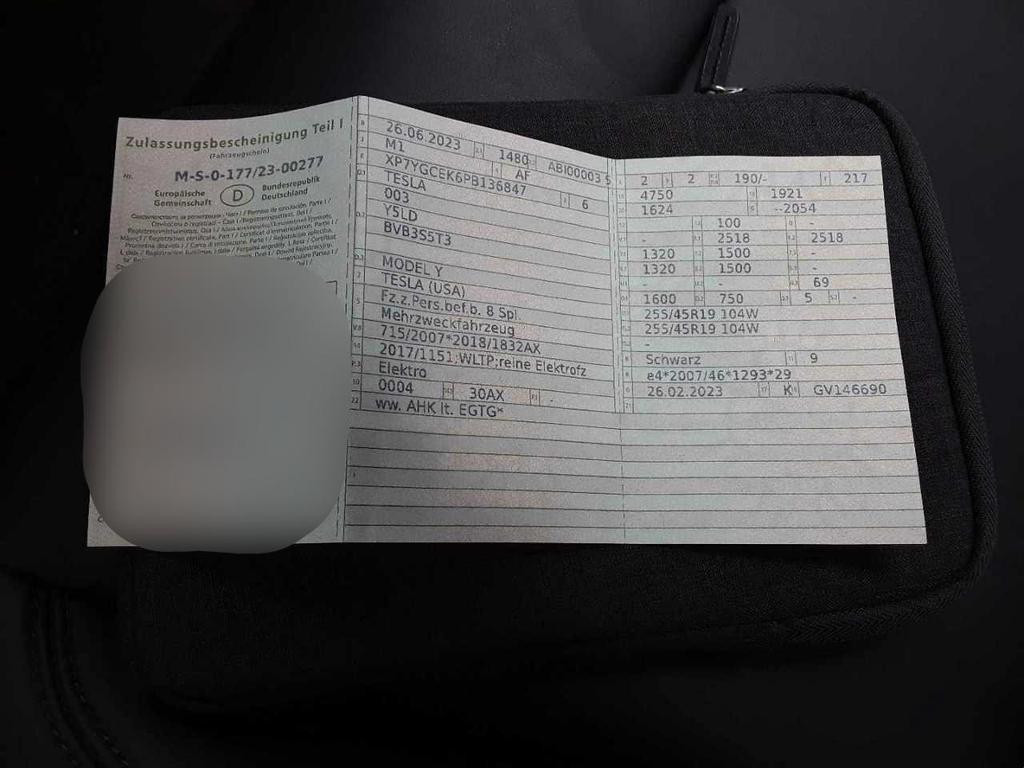 Zulassungsbescheinigung Teil I
(Fahrzeugschein)
Nr. M-S-0-177/23-00277
Europäische Gemeinschaft
D
Bundesrepublik Deutschland
26.06.2023 1480 ABI00003 5
M1 AF
XP7YGCEK6PB136847 6
TESLA
003
Y5LD
BVB3S5T3
MODEL Y
TESLA (USA)
Fz.z.Pers.bef.b. 8 Spl.
Mehrzweckfahrzeug
715/2007*2018/1832AX
2017/1151;WLTP;reine Elektrofz
Elektro
0004 30AX -
ww. AHK lt. EGTG*
2 2 190/- 217
4750 1921
1624 --2054
- 100 -
- 2518 2518
1320 1500 -
1320 1500 -
- - 69
1600 750 5 -
255/45R19 104W
255/45R19 104W
-
Schwarz 9
e4*2007/46*1293*29
26.02.2023 K GV146690